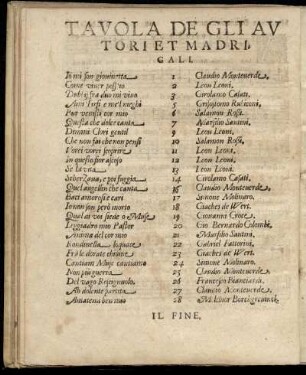 TAVOLA DE GLI AV
TORI ET MADRI
GALI
Io mi son giovinetta 1 Claudio Monteverde.
Come viver poss'io 2 Leon Leoni.
Dolcissimo mia vita 3 Girolamo Casati.
Ami Tirsi e me'l neghi 5 Grisostomo Rubiconi.
Pur venisti cor mio 6 Salamon Rossi.
Questa che dolce canta 7 Marsilio Santini.
Dimmi Clori gentil 9 Leon Leoni.
Che non fai che non pensi 10 Salamon Rossi.
Potei vorrei 11 Leon Leoni.
In questo 12 Leon Leoni.
Se la vita 13 Leon Leoni.
e poi fuggio 14 Girolamo Casati.
Quel augellin che canta 16 Claudio Monteverde.
Baci amorosi e cari 17 Simone Molinaro.
Io non son però morto 18 Giaches de Wert.
Qual 19 Giovanni Croce.
Leggiadro mio Pastor 20 Gio. Bernardo Colombi.
Anima del cor mio 21 Marsilio Santini.
Rondinella 22 Gabriel Fattorini.
Fra le dorate chiome 23 Giaches de Wert.
Cantiam Muse cantiamo 24 Simone Molinaro.
Non più guerra 25 Claudio Monteverde.
Del vago 26 Francesco Bianciardi.
Ah dolente partita 27 Claudio Monteverde.
Amatemi ben mio 28
IL FINE.